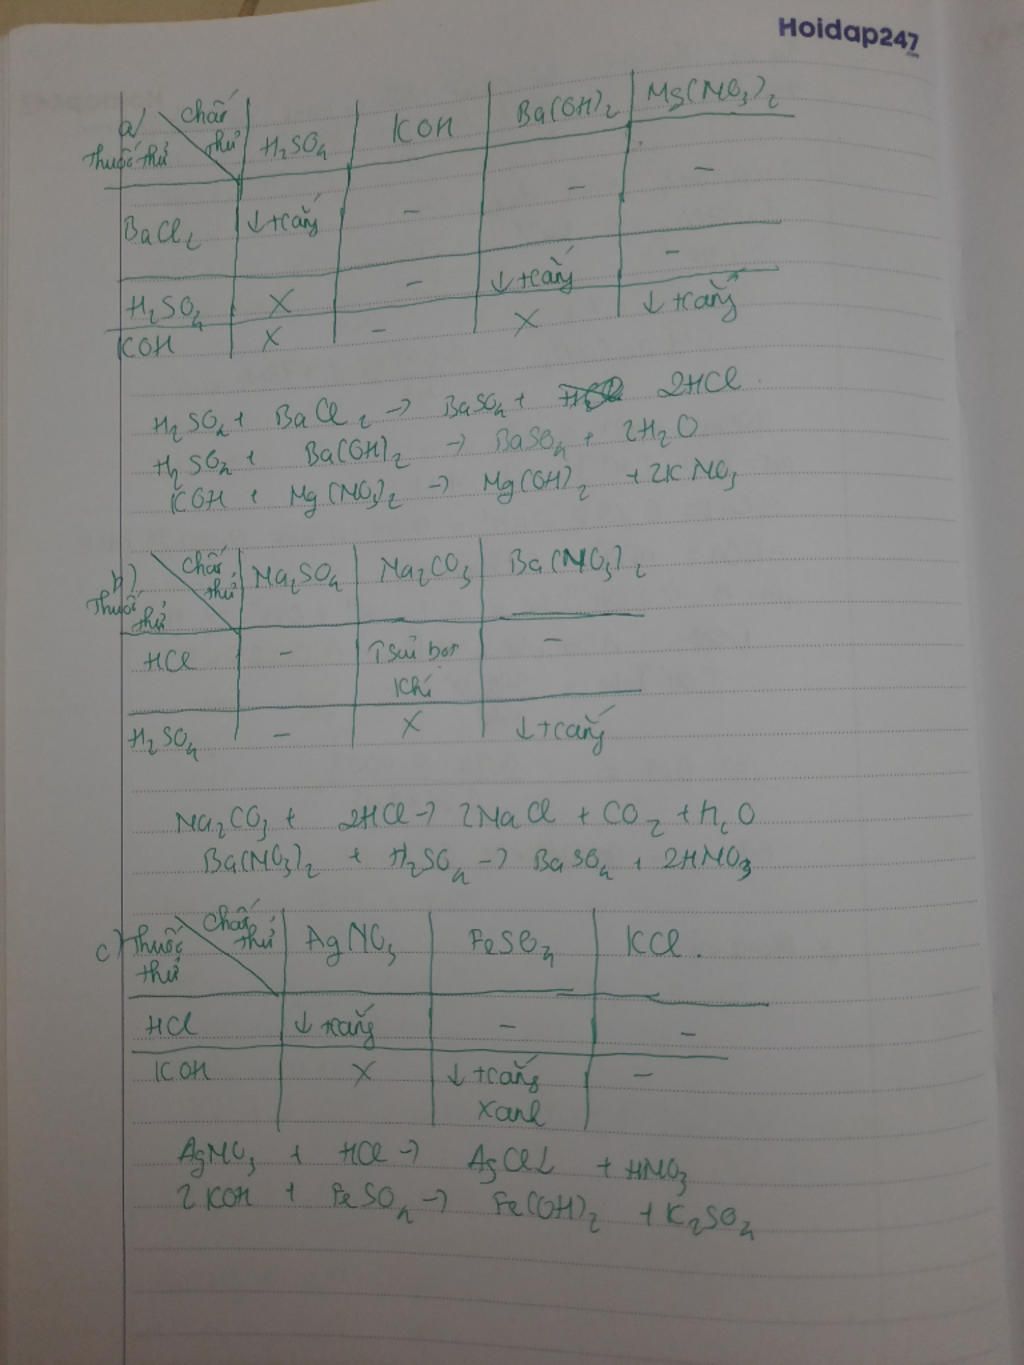 Hoidap247
a) Chất thử H₂SO₄ KOH Ba(OH)₂ Mg(NO₃)₂
Thuốc thử
BaCl₂ ↓ trắng - - -
H₂SO₄ X - ↓ trắng -
KOH X - X ↓ trắng
H₂SO₄ + BaCl₂ → BaSO₄ + 2HCl
H₂SO₄ + Ba(OH)₂ → BaSO₄ + 2H₂O
KOH + Mg(NO₃)₂ → Mg(OH)₂ + 2KNO₃
b) Chất thử Na₂SO₄ Na₂CO₃ Ba(NO₃)₂
Thuốc thử
HCl - ↑ sủi bọt -
khí
H₂SO₄ - X ↓ trắng
Na₂CO₃ + 2HCl → 2NaCl + CO₂ + H₂O
Ba(NO₃)₂ + H₂SO₄ → BaSO₄ + 2HNO₃
c) Thuốc thử Chất thử AgNO₃ FeSO₄ KCl.
HCl ↓ trắng - -
KOH X ↓ trắng -
xanh
AgNO₃ + HCl → AgCl↓ + HNO₃
2KOH + FeSO₄ → Fe(OH)₂ + K₂SO₄